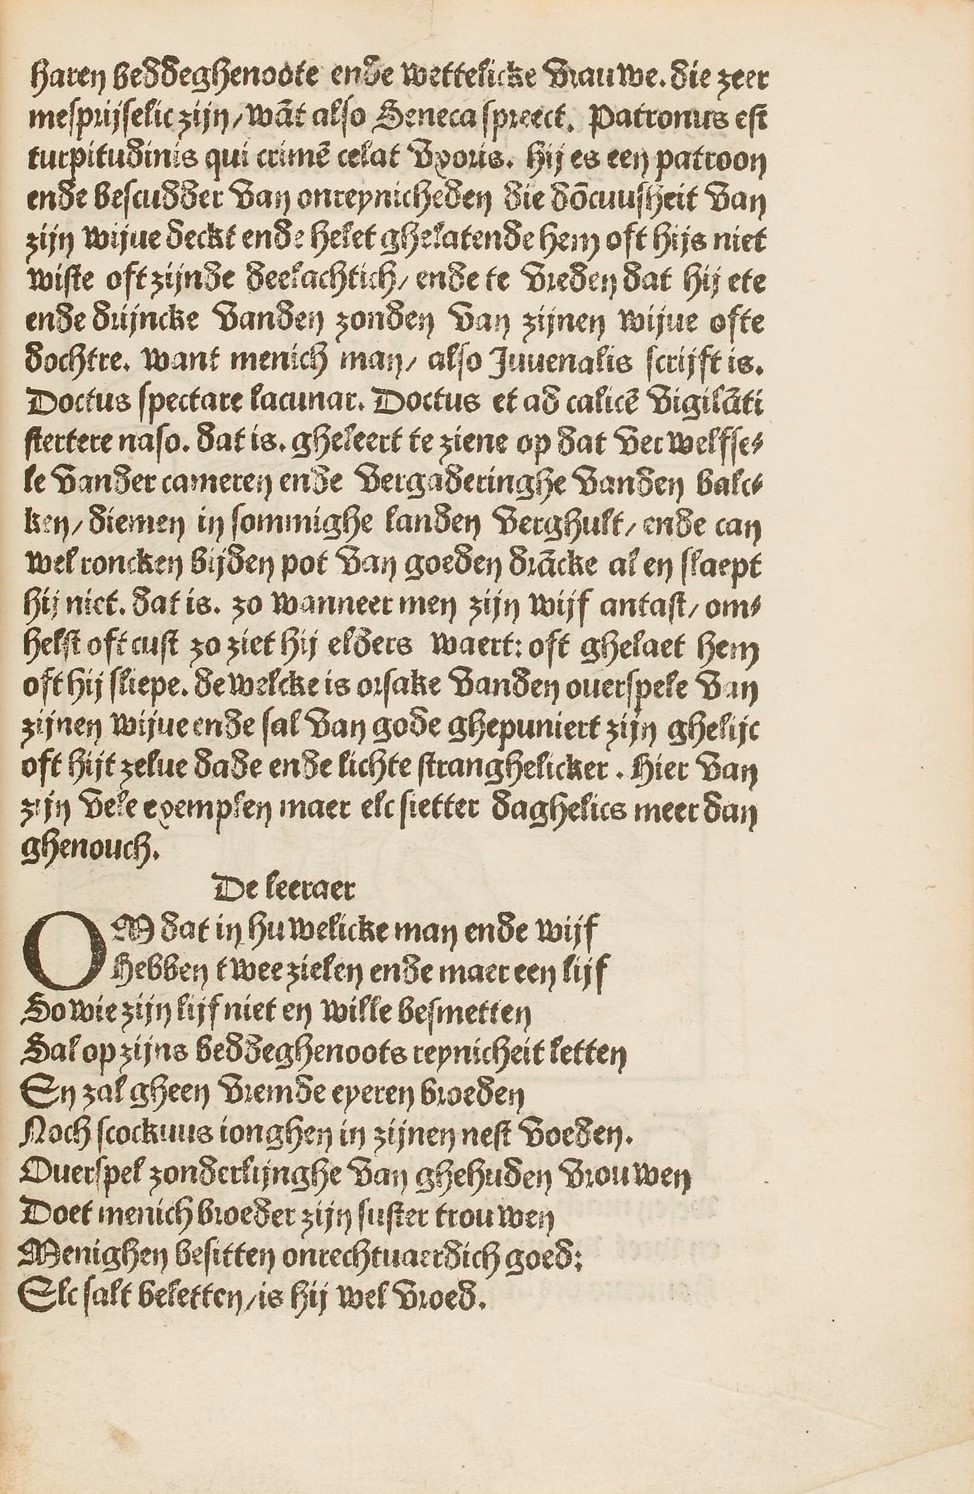 haren beddeghenoote ende wettelicke vrauwe. die zeer
mesprijselic zijn/ wāt also Seneca spreect. Patronus est
turpitudinis qui crimē celat vxoris. hij es een patroon
ende bescudder van onreynicheden die dōcuusheit van
zijn wijue deckt ende helet ghelatende hem oft hijs niet
wiste oft zijnde deelachtich/ ende te vreden dat hij ete
ende drijncke vanden zonden van zijnen wijue ofte
dochtre. want menich man/ also Juuenalis scrijft is.
Doctus spectare lacunar. Doctus et ad calicē vigilāti
stertere naso. dat is. gheleert te ziene op dat verwelfse⸗
le vander cameren ende vergaderinghe vanden balc⸗
ken/ diemen in sommighe landen verghult/ ende can
wel roncken bijden pot van goeden drācke al en slaept
hij niet. dat is. zo wanneer men zijn wijf antast/ om⸗
helst oft cust zo ziet hij elders waert: oft ghelaet hem
oft hij sliepe. de welcke is orsake vanden ouerspele van
zijnen wijue ende sal van gode ghepuniert zijn ghelijc
oft hijt zelue dade ende lichte stranghelicker. Hier van
zijn vele exemplen maer elc sietter daghelics meer dan
ghenouch.
De leeraer
OM dat in huwelicke man ende wijf
Hebben twee zielen ende maer een lijf
So wie zijn lijf niet en wille besmetten
Sal op zijns beddeghenoots reynicheit letten
En zal gheen vremde eyeren broeden
Noch scockuus ionghen in zijnen nest voeden.
Ouerspel zonderlijnghe van ghehuden vrouwen
Doet menich broeder zijn suster trouwen
Menighen besitten onrechtuaerdich goed:
Elc salt beletten/ is hij wel vroed.